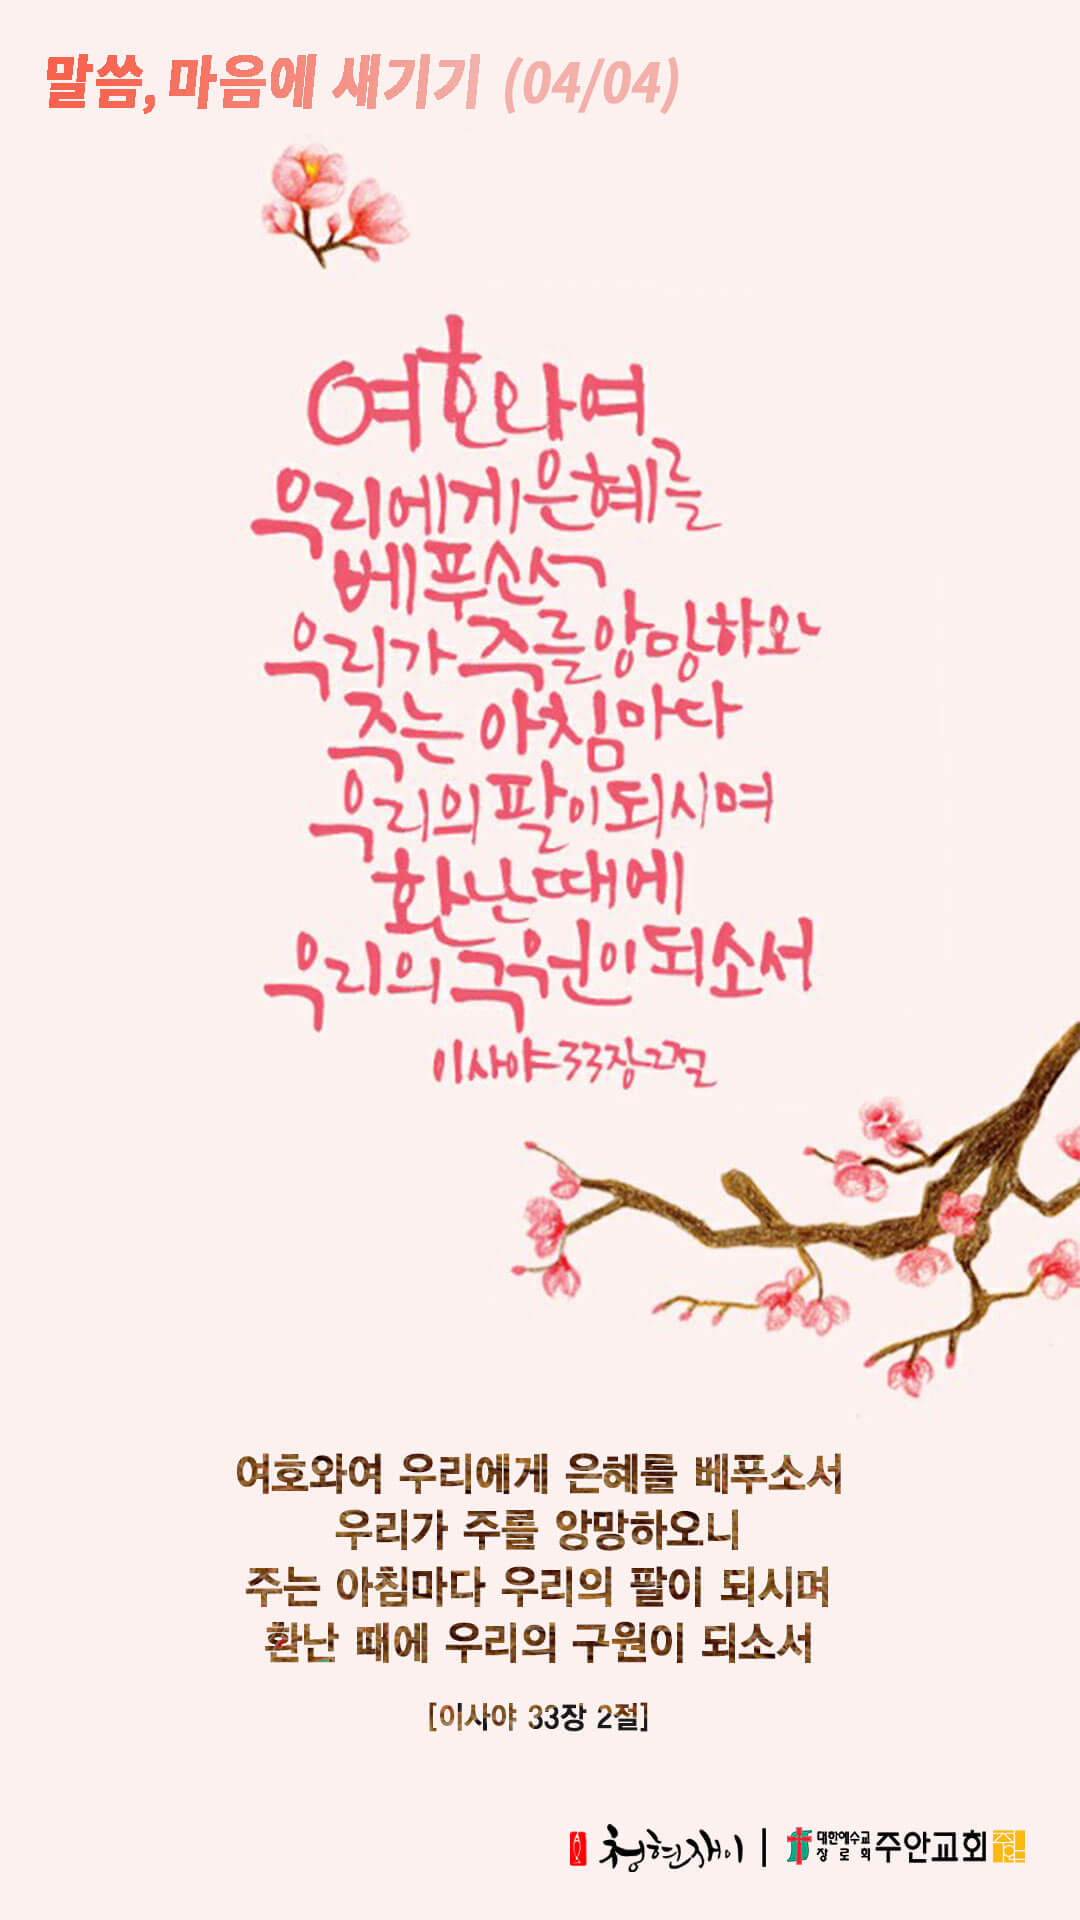 말씀, 마음에 새기기 (04/04)
여호와여
우리에게 은혜를
베푸소서
우리가 주를 앙망하오니
주는 아침마다
우리의 팔이 되시며
환난 때에
우리의 구원이 되소서
이사야 33장 2절
여호와여 우리에게 은혜를 베푸소서
우리가 주를 앙망하오니
주는 아침마다 우리의 팔이 되시며
환난 때에 우리의 구원이 되소서
[이사야 33장 2절]
청현재이 | 대한예수교장로회 주안교회